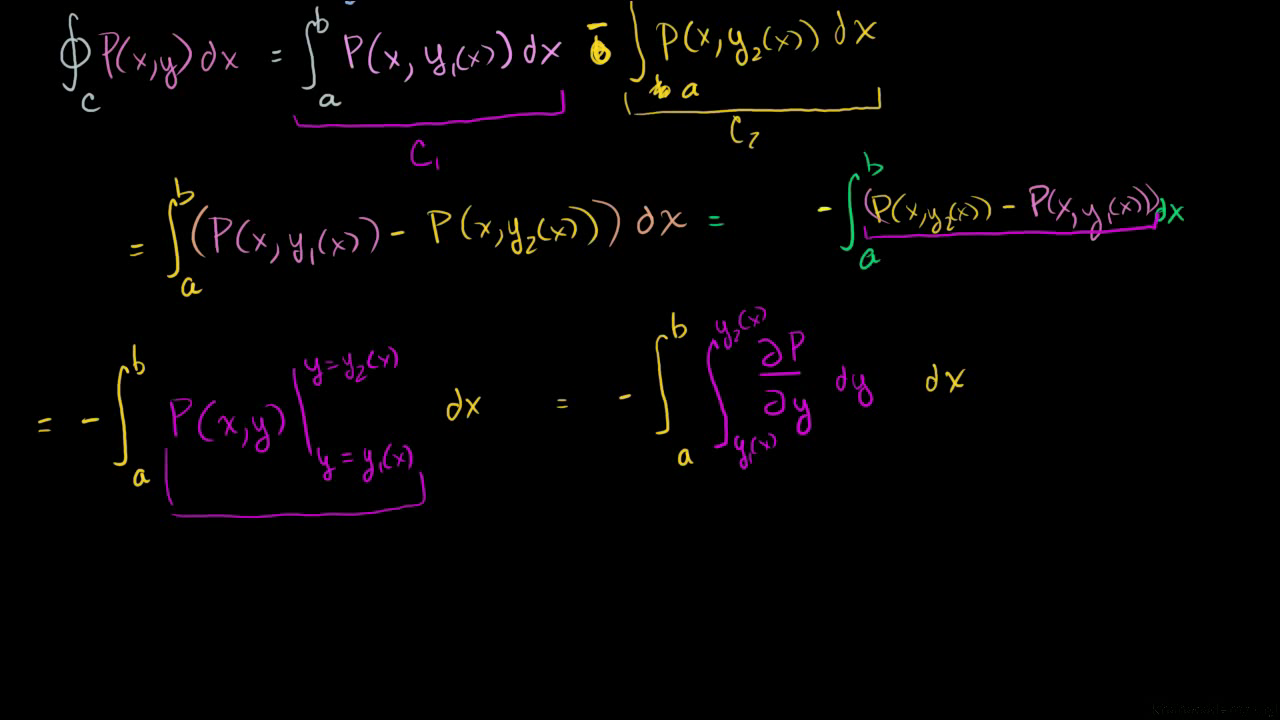 ∮_C P(x,y) dx = ∫_a^b P(x, y₁(x)) dx - ∫_a^b P(x, y₂(x)) dx
C₁ C₂
= ∫_a^b (P(x, y₁(x)) - P(x, y₂(x))) dx = - ∫_a^b (P(x, y₂(x)) - P(x, y₁(x))) dx
= - ∫_a^b P(x,y) |_{y = y₁(x)}^{y = y₂(x)} dx = - ∫_a^b ∫_{y₁(x)}^{y₂(x)} ∂P/∂y dy dx